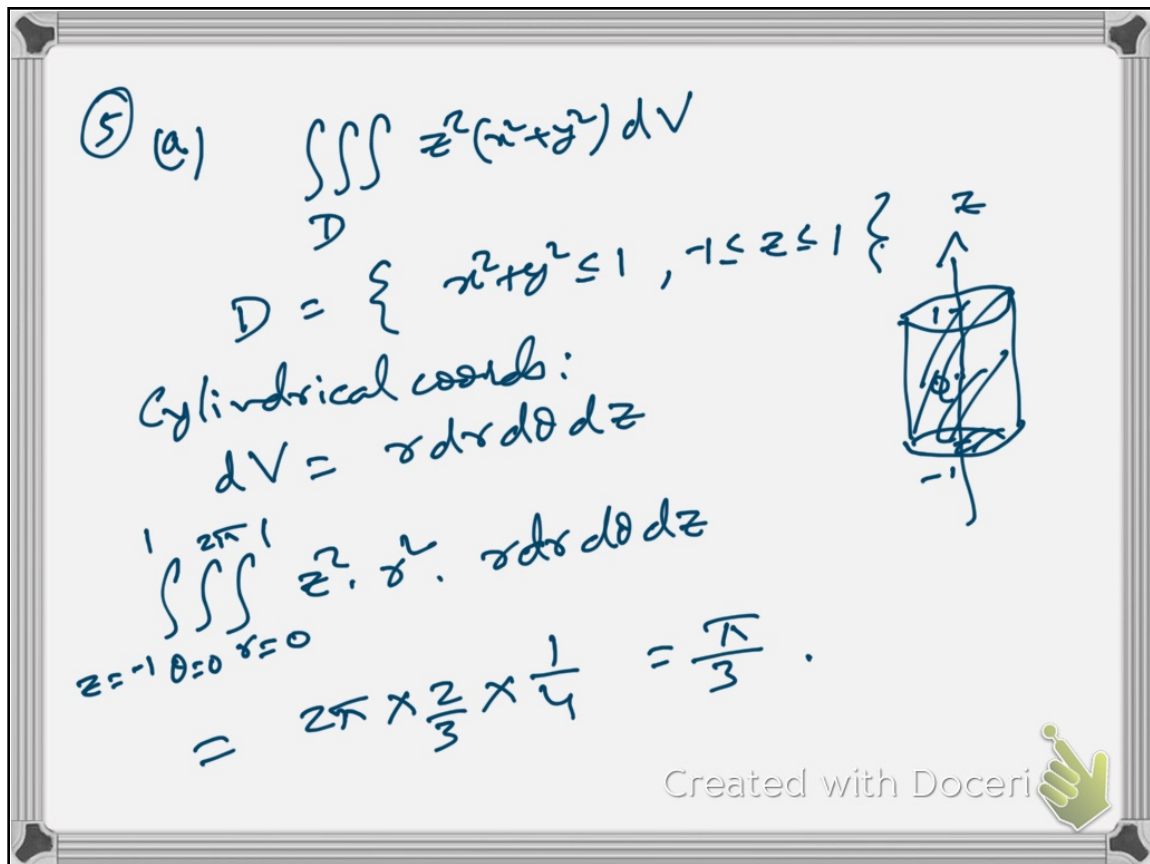 ⑤ (a) ∫∫∫ z²(x²+y²) dV
D
D = { x²+y² ≤ 1 , -1 ≤ z ≤ 1 {
z
1
0
-1
Cylindrical coords:
dV = r dr dθ dz
1 2π 1
∫∫∫ z². r². r dr dθ dz
z=-1 θ=0 r=0
= 2π × 2/3 × 1/4 = π/3 .
Created with Doceri